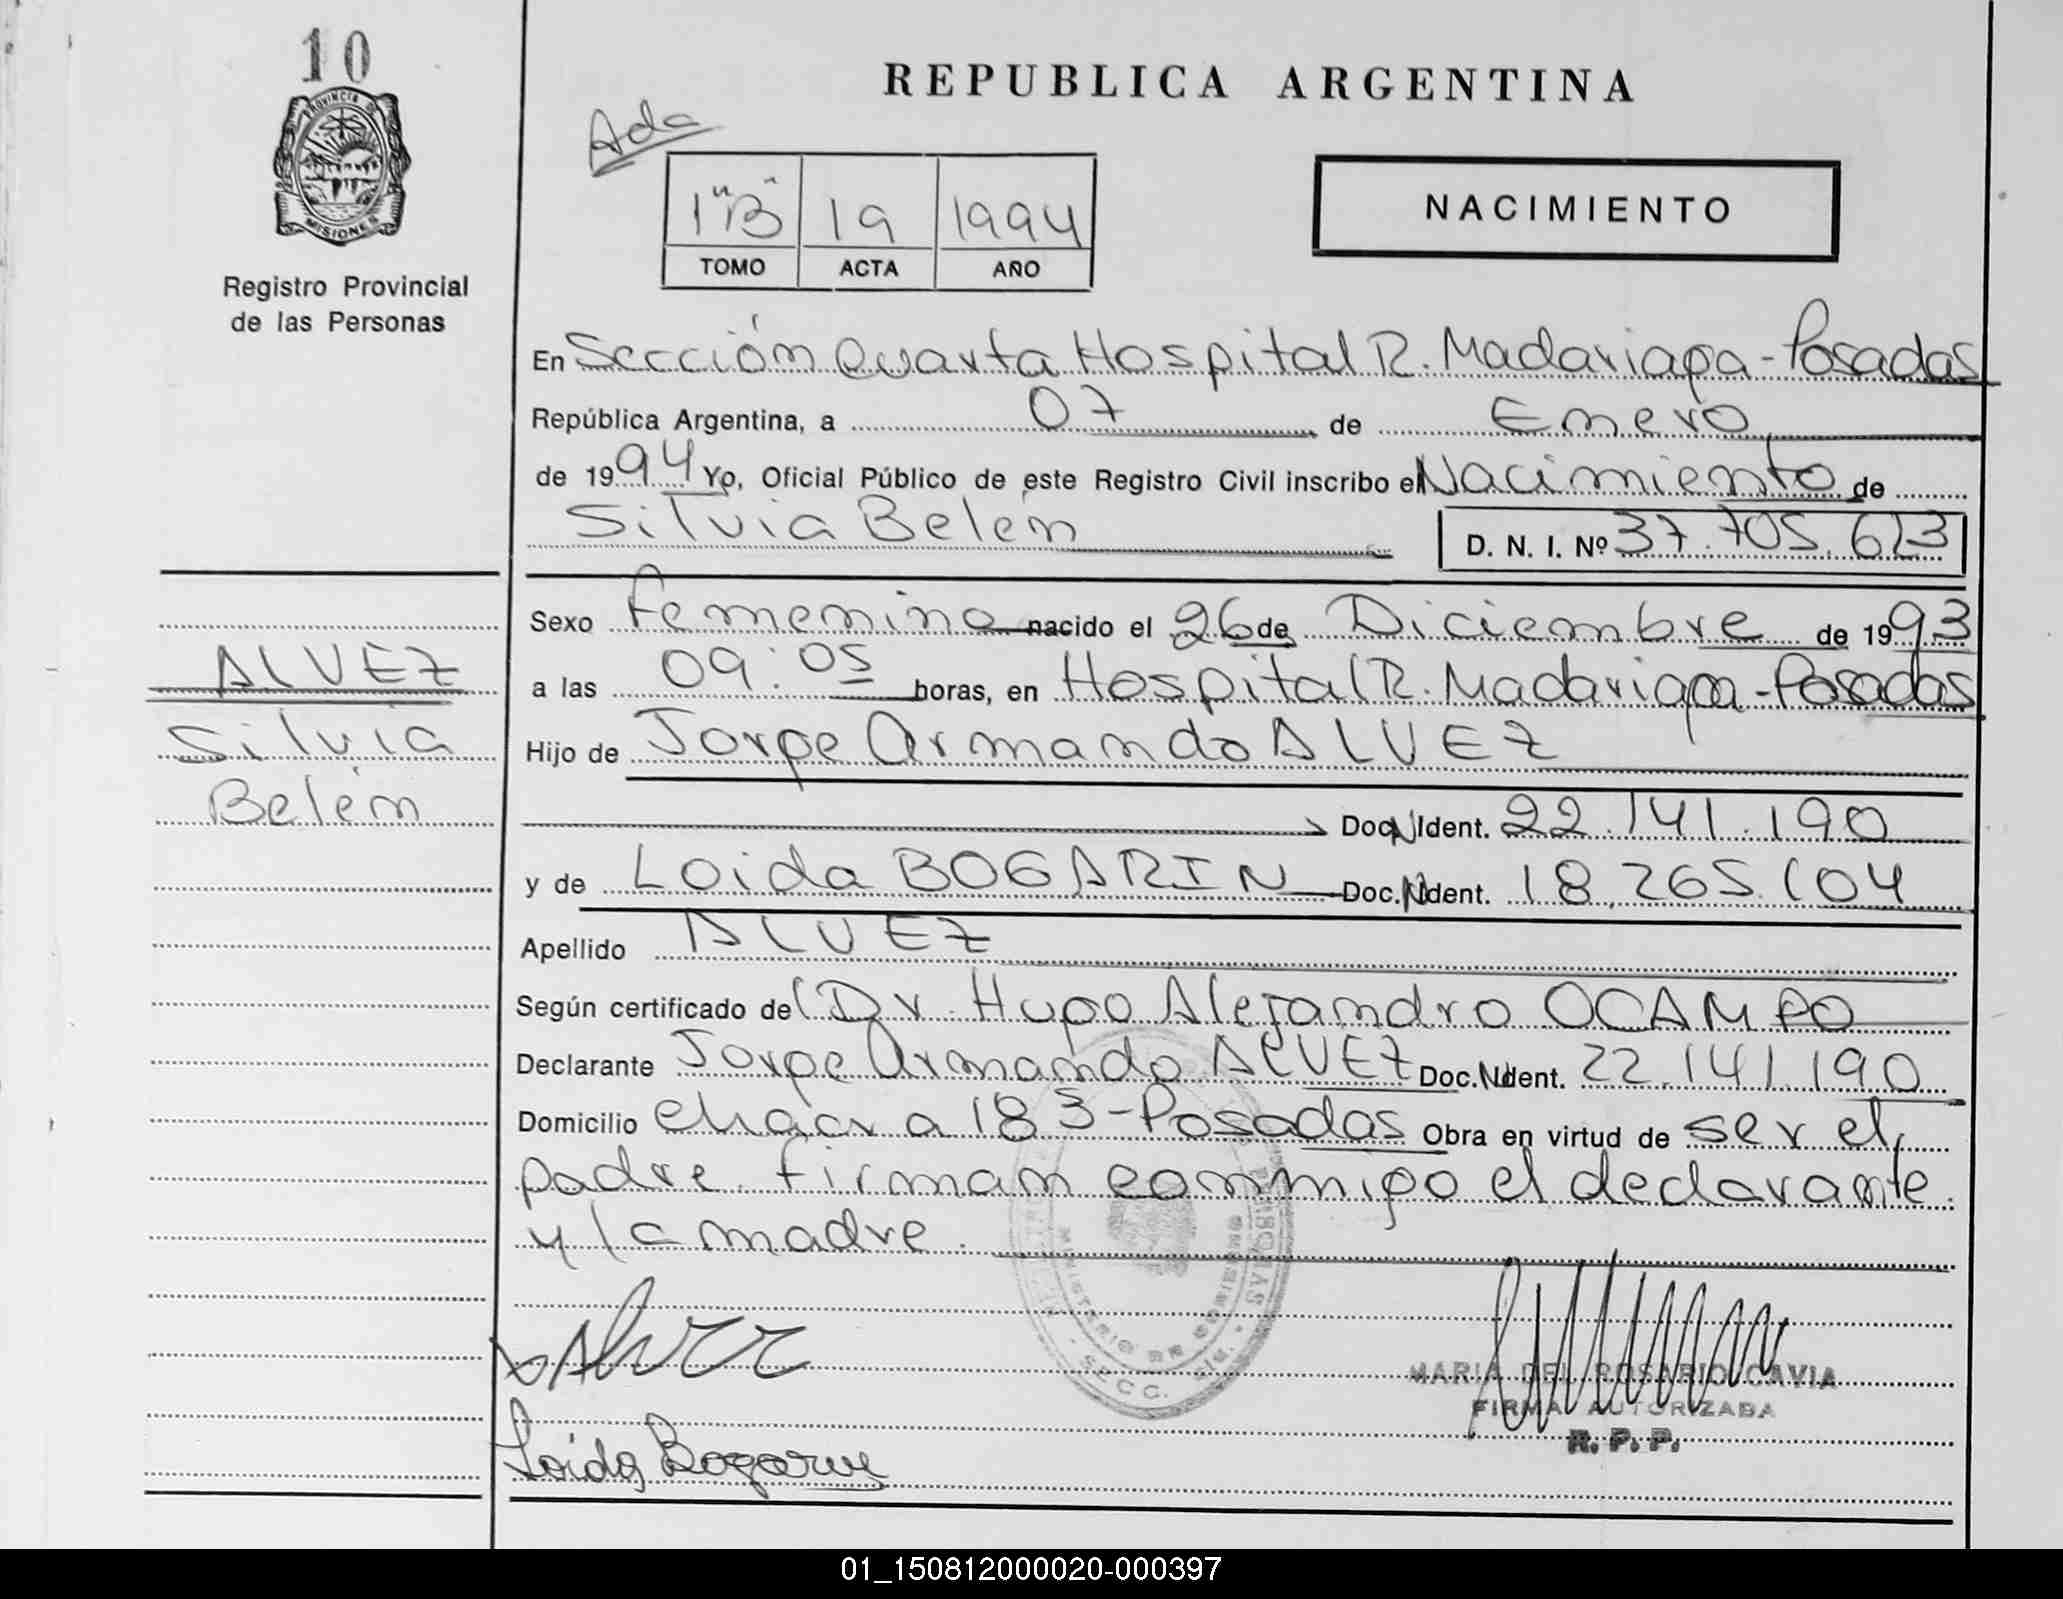 10
PROVINCIA DE
MISIONES
Registro Provincial
de las Personas
REPUBLICA ARGENTINA
Ada
1"B" 19 1994
TOMO ACTA AÑO
NACIMIENTO
En Sección Cuarta Hospital R. Madariaga - Posadas
República Argentina, a 07 de Enero
de 1994 Yo, Oficial Público de este Registro Civil inscribo el Nacimiento de
Silvia Belén D. N. I. Nº 37.705.613
Sexo femenino nacido el 26 de Diciembre de 1993
a las 09:05 horas, en Hospital R. Madariaga - Posadas
Hijo de Jorge Armando ALVEZ
Doc. N Ident. 22.141.190
y de Loida BOGARIN Doc. N Ident. 18.265.104
Apellido ALVEZ
Según certificado del Dr. Hugo Alejandro OCAMPO
Declarante Jorge Armando ALVEZ Doc. N Ident. 22.141.190
Domicilio Chacra 183 - Posadas Obra en virtud de ser el
padre. firman conmigo el declarante
y la madre.
ALVEZ
Silvia
Belén
MINISTERIO DE GOBIERNO
SECC.
Alvez
Loida Bogarin
MARIA DEL ROSARIO CAVIA
FIRMA AUTORIZADA
R. P. P.
01_150812000020-000397